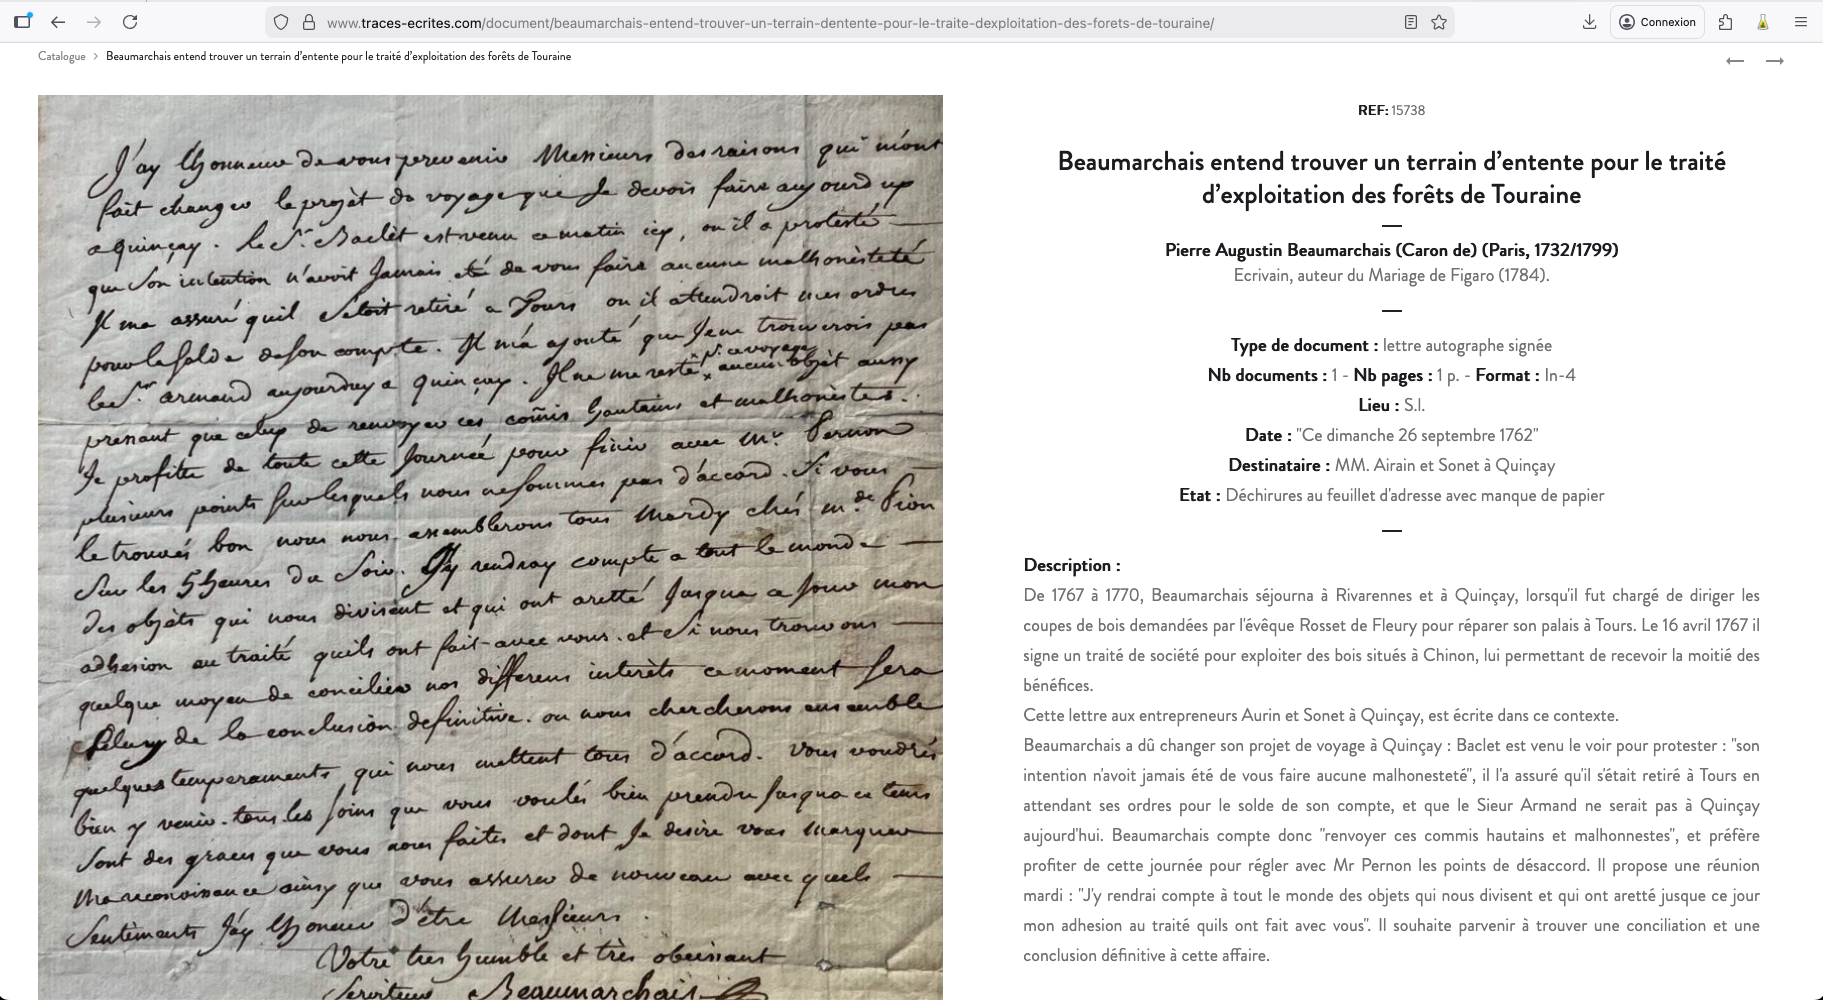 www.traces-ecrites.com/document/beaumarchais-entend-trouver-un-terrain-dentente-pour-le-traite-dexploitation-des-forets-de-touraine/
Connexion
Catalogue > Beaumarchais entend trouver un terrain d’entente pour le traité d’exploitation des forêts de Touraine
J'ay lhonneur de vous prevenir Messieurs des raisons qui m'ont
fait changer le projèt du voyage que Je devois faire aujourd'uy
a quinçay. le Sr. Baclèt est venu ce matin icy, ou il a protesté
que Son intention n'avoit Jamais eté de vous faire aucune malhonèsteté
Il ma assuré quil S'etoit retiré a Tours ou il attendroit mes ordres
pour le Solde de Son compte. Il m'a ajouté que Je ne trouverois pas
le Sr. armand aujourduy a quinçay. Il ne me reste pr. ce voyage aucun objèt aussy
pressant que celuy de renvoyer ces com̃is hautains et malhonèstes.
Je profitte de toute cette Journée pour finir avec Mr. Pernon
plusieurs points Sur lesquels nous ne sommes pas d'accord. Si vous
le trouvés bon nous nous assemblerons tous Mardy chés Mde. Pion
Sur les 5 heures du Soir. J'y rendray compte a tout le monde
des objèts qui nous divisent et qui ont aretté Jusqua ce Jour mon
adhesion au traité quils ont fait avec vous. et Si nous trouvons
quelque moyen de concilier nos differens interèts ce moment Sera
Celuy de la conclusion definitive. ou nous chercherons ensemble
quelques temperaments qui nous mettent tous d'accord. Vous voudrés
bien y venir. tous les Soins que vous voulés bien prendre Jusqua ce tems
Sont des graces que vous nous faites et dont Je desire vous marquer
Ma reconoissance ainsy que vous assurer de nouveau avec quels
Sentiments J'ay lhoneur d'être Messieurs.
Votre tres humble et très obeissant
Serviteur Beaumarchais
REF: 15738
Beaumarchais entend trouver un terrain d’entente pour le traité
d’exploitation des forêts de Touraine
Pierre Augustin Beaumarchais (Caron de) (Paris, 1732/1799)
Ecrivain, auteur du Mariage de Figaro (1784).
Type de document : lettre autographe signée
Nb documents : 1 - Nb pages : 1 p. - Format : In-4
Lieu : S.l.
Date : "Ce dimanche 26 septembre 1762"
Destinataire : MM. Airain et Sonet à Quinçay
Etat : Déchirures au feuillet d'adresse avec manque de papier
Description :
De 1767 à 1770, Beaumarchais séjourna à Rivarennes et à Quinçay, lorsqu'il fut chargé de diriger les
coupes de bois demandées par l'évêque Rosset de Fleury pour réparer son palais à Tours. Le 16 avril 1767 il
signe un traité de société pour exploiter des bois situés à Chinon, lui permettant de recevoir la moitié des
bénéfices.
Cette lettre aux entrepreneurs Aurin et Sonet à Quinçay, est écrite dans ce contexte.
Beaumarchais a dû changer son projet de voyage à Quinçay : Baclet est venu le voir pour protester : "son
intention n'avoit jamais été de vous faire aucune malhonesteté", il l'a assuré qu'il s'était retiré à Tours en
attendant ses ordres pour le solde de son compte, et que le Sieur Armand ne serait pas à Quinçay
aujourd'hui. Beaumarchais compte donc "renvoyer ces commis hautains et malhonnestes", et préfère
profiter de cette journée pour régler avec Mr Pernon les points de désaccord. Il propose une réunion
mardi : "J'y rendrai compte à tout le monde des objets qui nous divisent et qui ont aretté jusque ce jour
mon adhesion au traité quils ont fait avec vous". Il souhaite parvenir à trouver une conciliation et une
conclusion définitive à cette affaire.